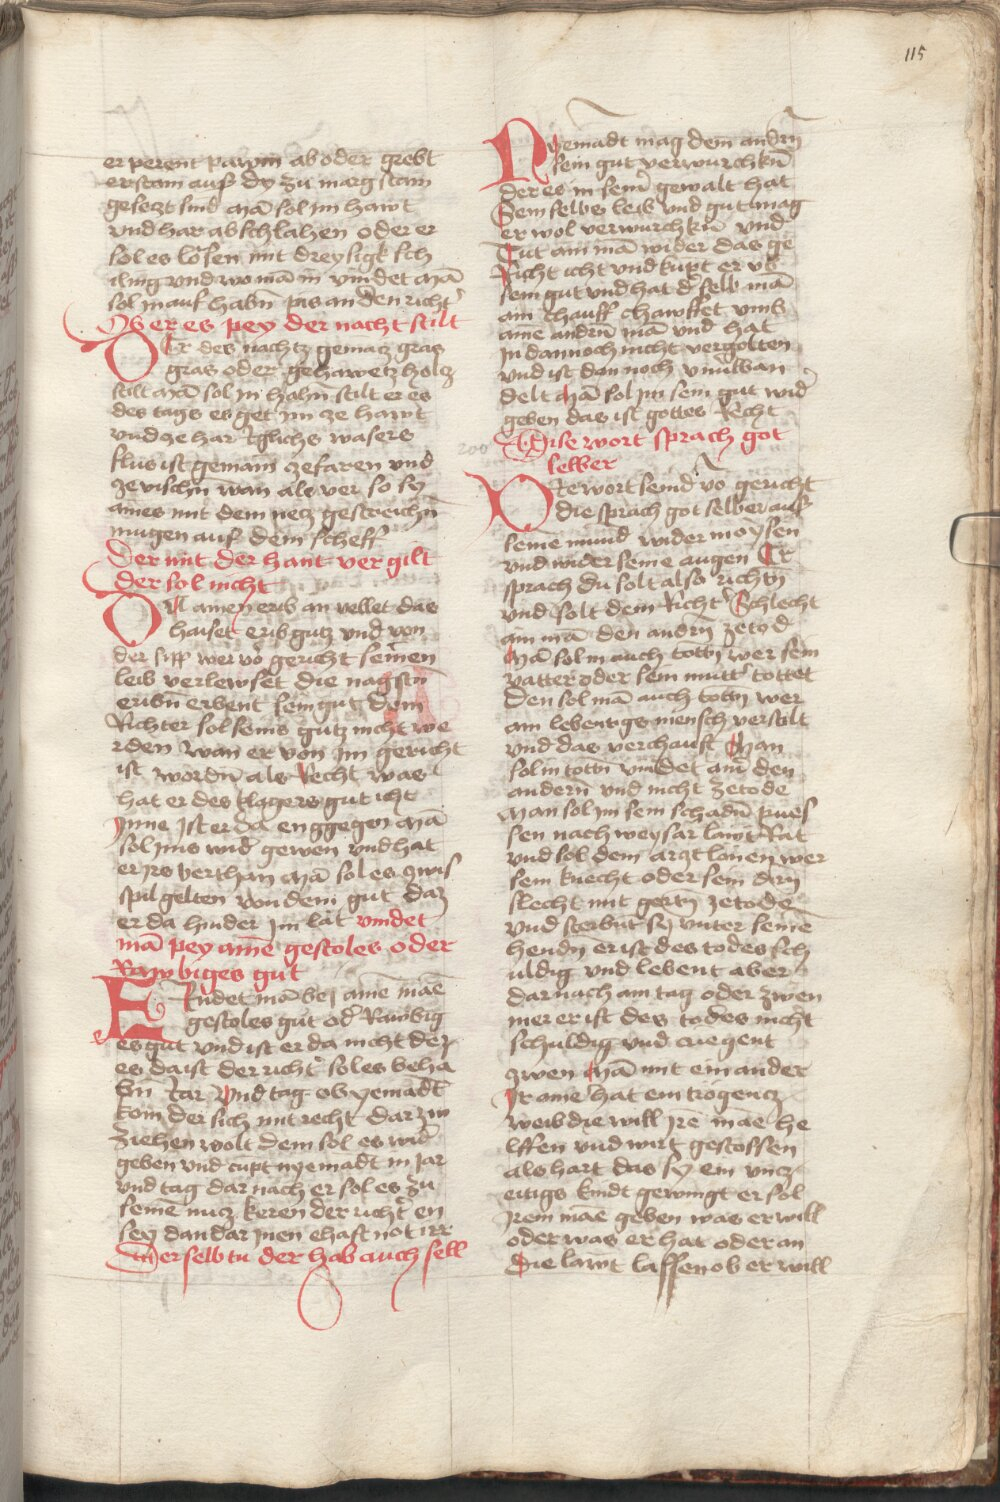 115
er perent pawm ab oder grebt
er stain auf dy zu marg stain
gesetzt sind Mā sol im hawt
vnd har abschlahen oder er
sol es lösen mit dreysigk sch
iling vnd wo mā in vindet Mā
sol in auf habn̄ pis an den richt'
Ob er es pey der nacht stilt
Er des nachtz gemātz gras
gras oder gehawetz holtz
stilt Mā sol in hahn̄ stilt er es
des tags es get im ze hawt
vnd ze har Igliche wasers
flus ist gemain ze faren vnd
ze vischn̄ wan als ver so sy
aines mit dem netz gestreichn̄
mugen auf dem scheff
Der mit der hant ver gilt
der sol nicht
Ol ainen erib an vellet das
haiset erib gutz vnd von
der sipp wer vō gericht seinen
leib verlewset die nagstn̄
eribn̄ erbent sein gut dem
Richter sol seins gutz nicht we
rden wan er von im gericht
ist wordn̄ als Recht was
hat er des klagers gut icht
Inne Ist er da enggegen Mā
sol ims wid' gewen vnd hat
er irs verthan Mā sol es zwis
spil gelten von dem gut daz
er da hinder im lāt vindet
mā pey aine gestoles oder
Rawbiges gut
Findet mā bei aine mā
gestoles gut od' Rawbig
es gut vnd ist er da nicht dez
es da ist der richt' sol es beha
bn̄ Iar vnd tag ob yemadt
kom der sich mit recht dar zw
ziehen wolt dem sol es wid'
geben vnd cupt nyemadt in Jar
vnd tag dar nach er sol es zu
seinē nucz keren der richt' en
sey dan dar inen ehaft not irr
Wer selb tu der hab auch sell
Nyemadt mag dem andrn̄
sein gut verwurchkn̄
der es in sein' gewalt hat
Sein selbs leib vnd gut mag
er wol verwurchkn̄ vnd
Tut ain mā wider das ge
Richt icht vnd kupt er vb
sein gut vnd hat d' selb mā
ain chauff chawffet vmb
aine andrn̄ mā vnd hat
in dannoch nicht vergolten
vnd ist dan noch vnuban
delt Mā sol im sein gut wid'
geben das ist gottes Recht
Dise wort sprach got
selber
Die wort seind vō gericht
die sprach got selber auf
seinē mund wider moysen
vnd wider seine augen Er
sprach du solt also richtn̄
vnd solt dem Richt' Schlecht
ain mā den andrn̄ ze tod
Mā sol in auch totn̄ wer sein
vatter oder sein mutt' tottet
den sol mā auch totn̄ wer
ain lebentigs mensch verstilt
vnd das verchauft Man
sol in totn̄ vindet ain' den
andern vnd nicht ze tode
Man sol im sein schadn̄ pues
sen nach weysar lawt Rat
vnd sol dem artzt lonen wer
sein knecht oder sein dirn̄
slecht mit gertn̄ ze tode
vnd sterbnt sy vnter seinē
hendn̄ er ist des todes sch
uldig vnd lebent aber
dar nach ain tag oder zwen
mer er ist des todes nicht
schuldig vnd criegent
zwen Mā mit ein ander
Ir aine hat ein trogentz
weib die will irē māe he
lffen vnd wirt gestossen
als hart das sy ein vncz
eitigs kindt gewingt er sol
irem māe geben was er will
oder was er hat oder an
die lawt lassen ob er will